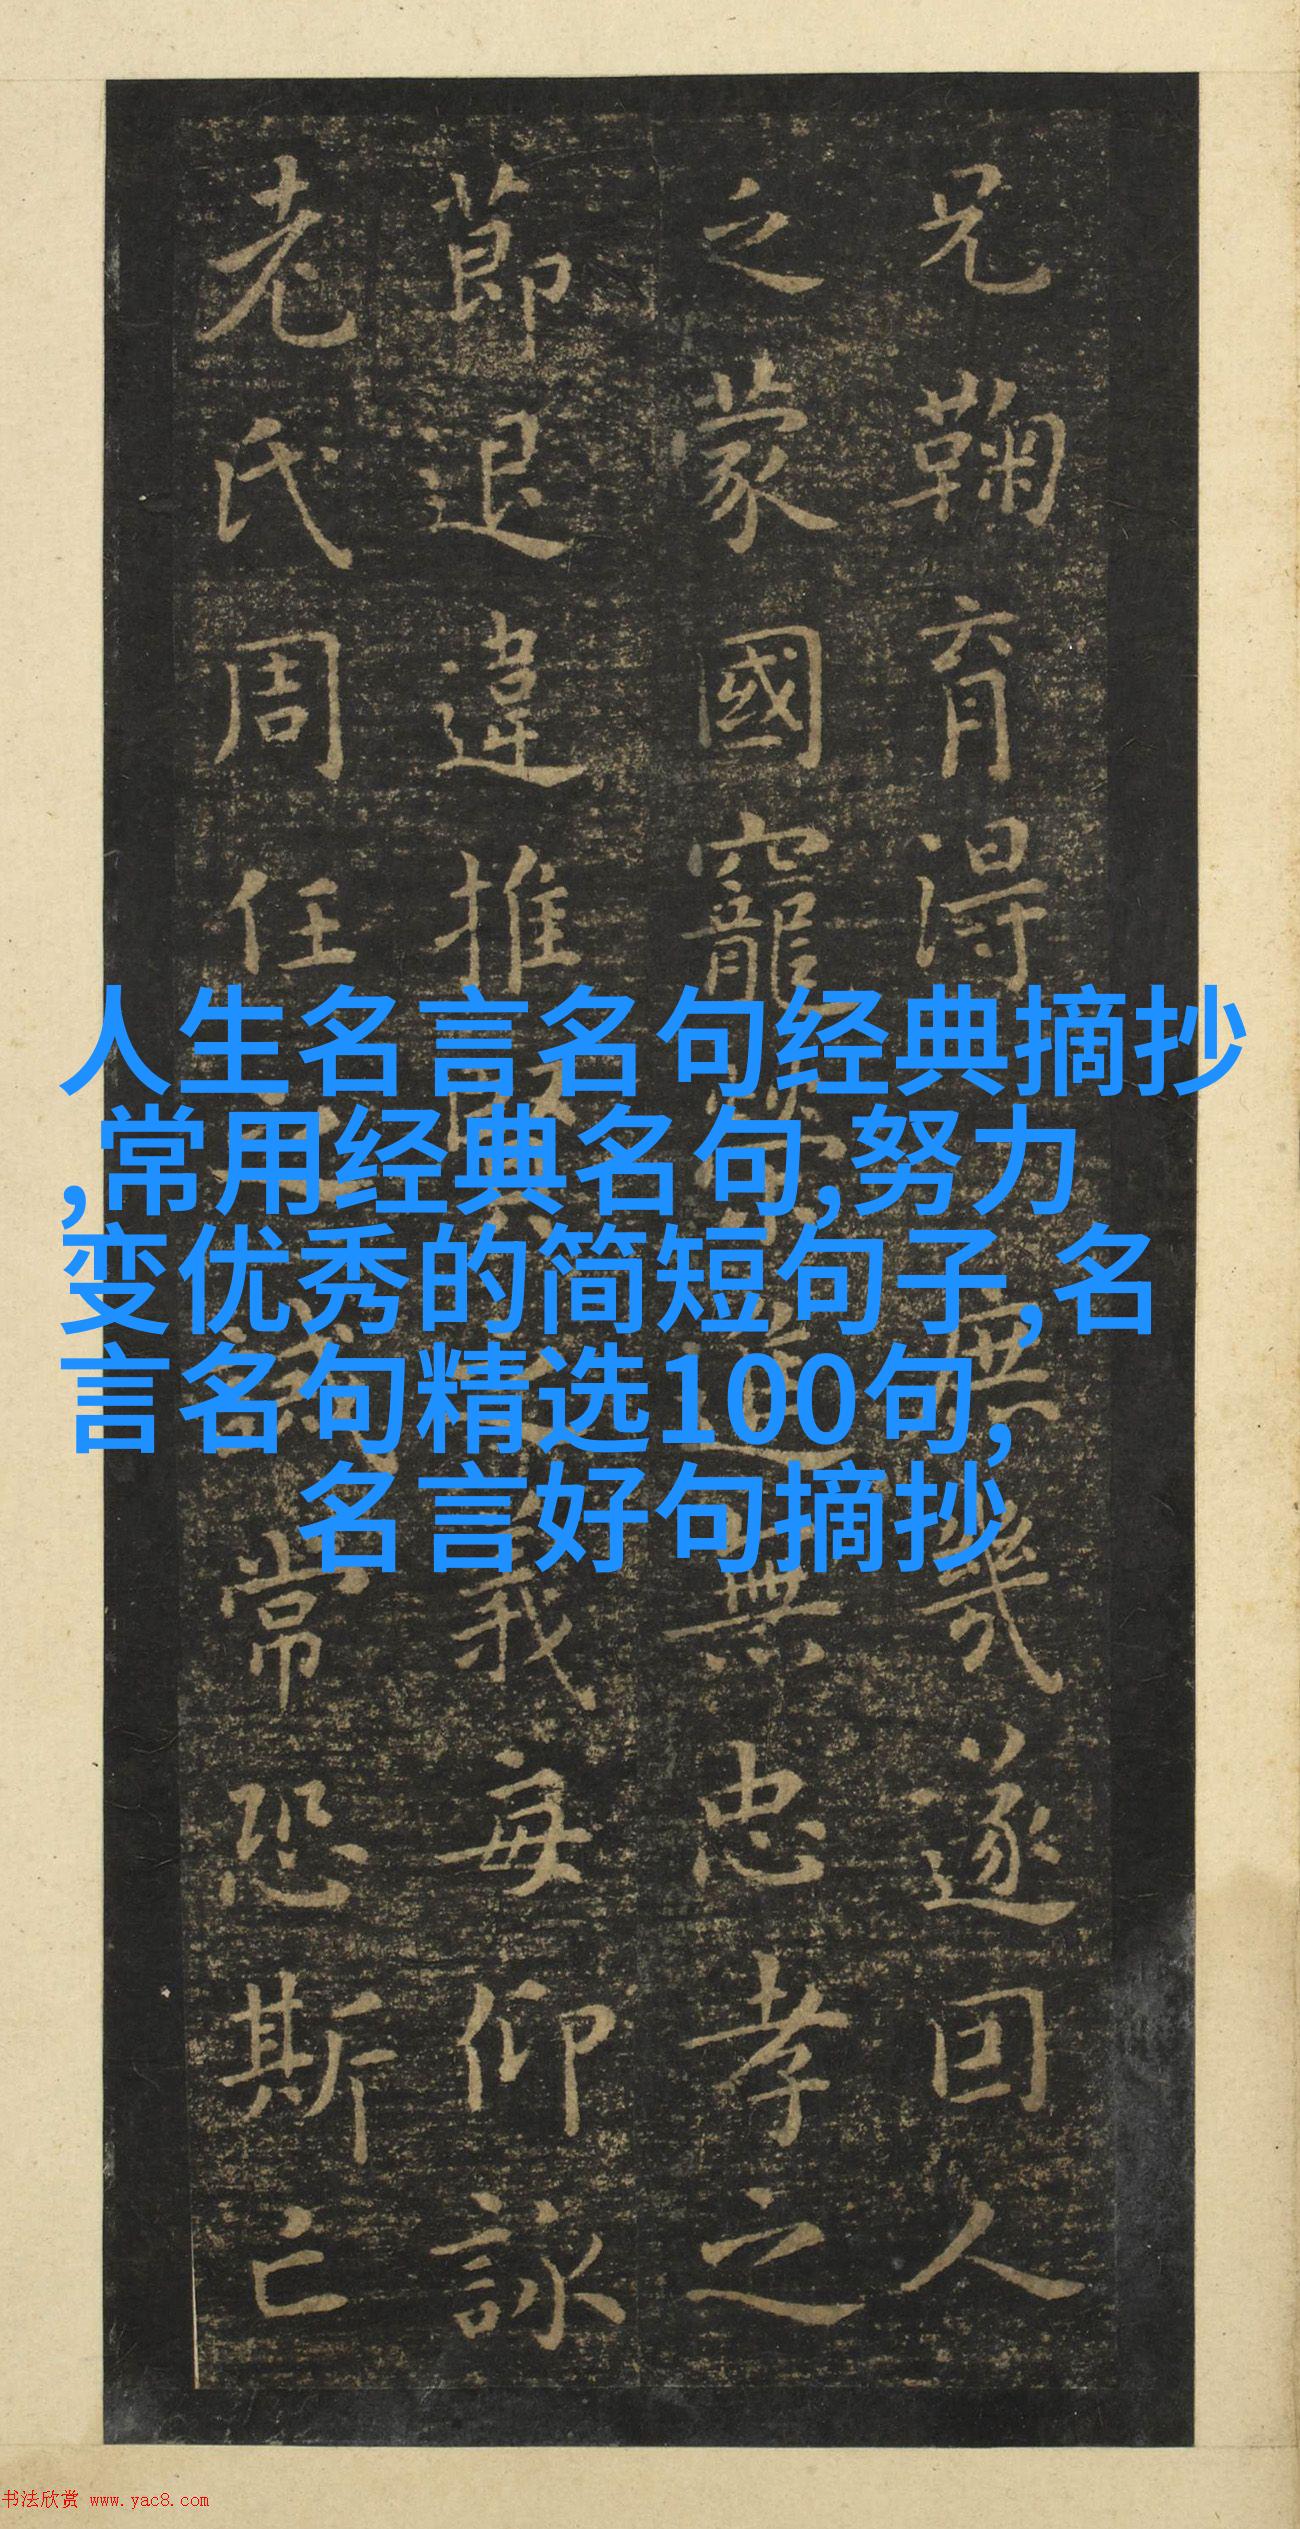 兄鞠育得庶幾遂因人
乏蒙國寵榮進無忠孝之
節退違推賢之義每仰詠
老氏周任之誡常恐斯亡
人生名言名句经典摘抄
,常用经典名句,努力
变优秀的简短句子,名
言名句精选100句,
名言好句摘抄
书法欣赏 www.yac8.com